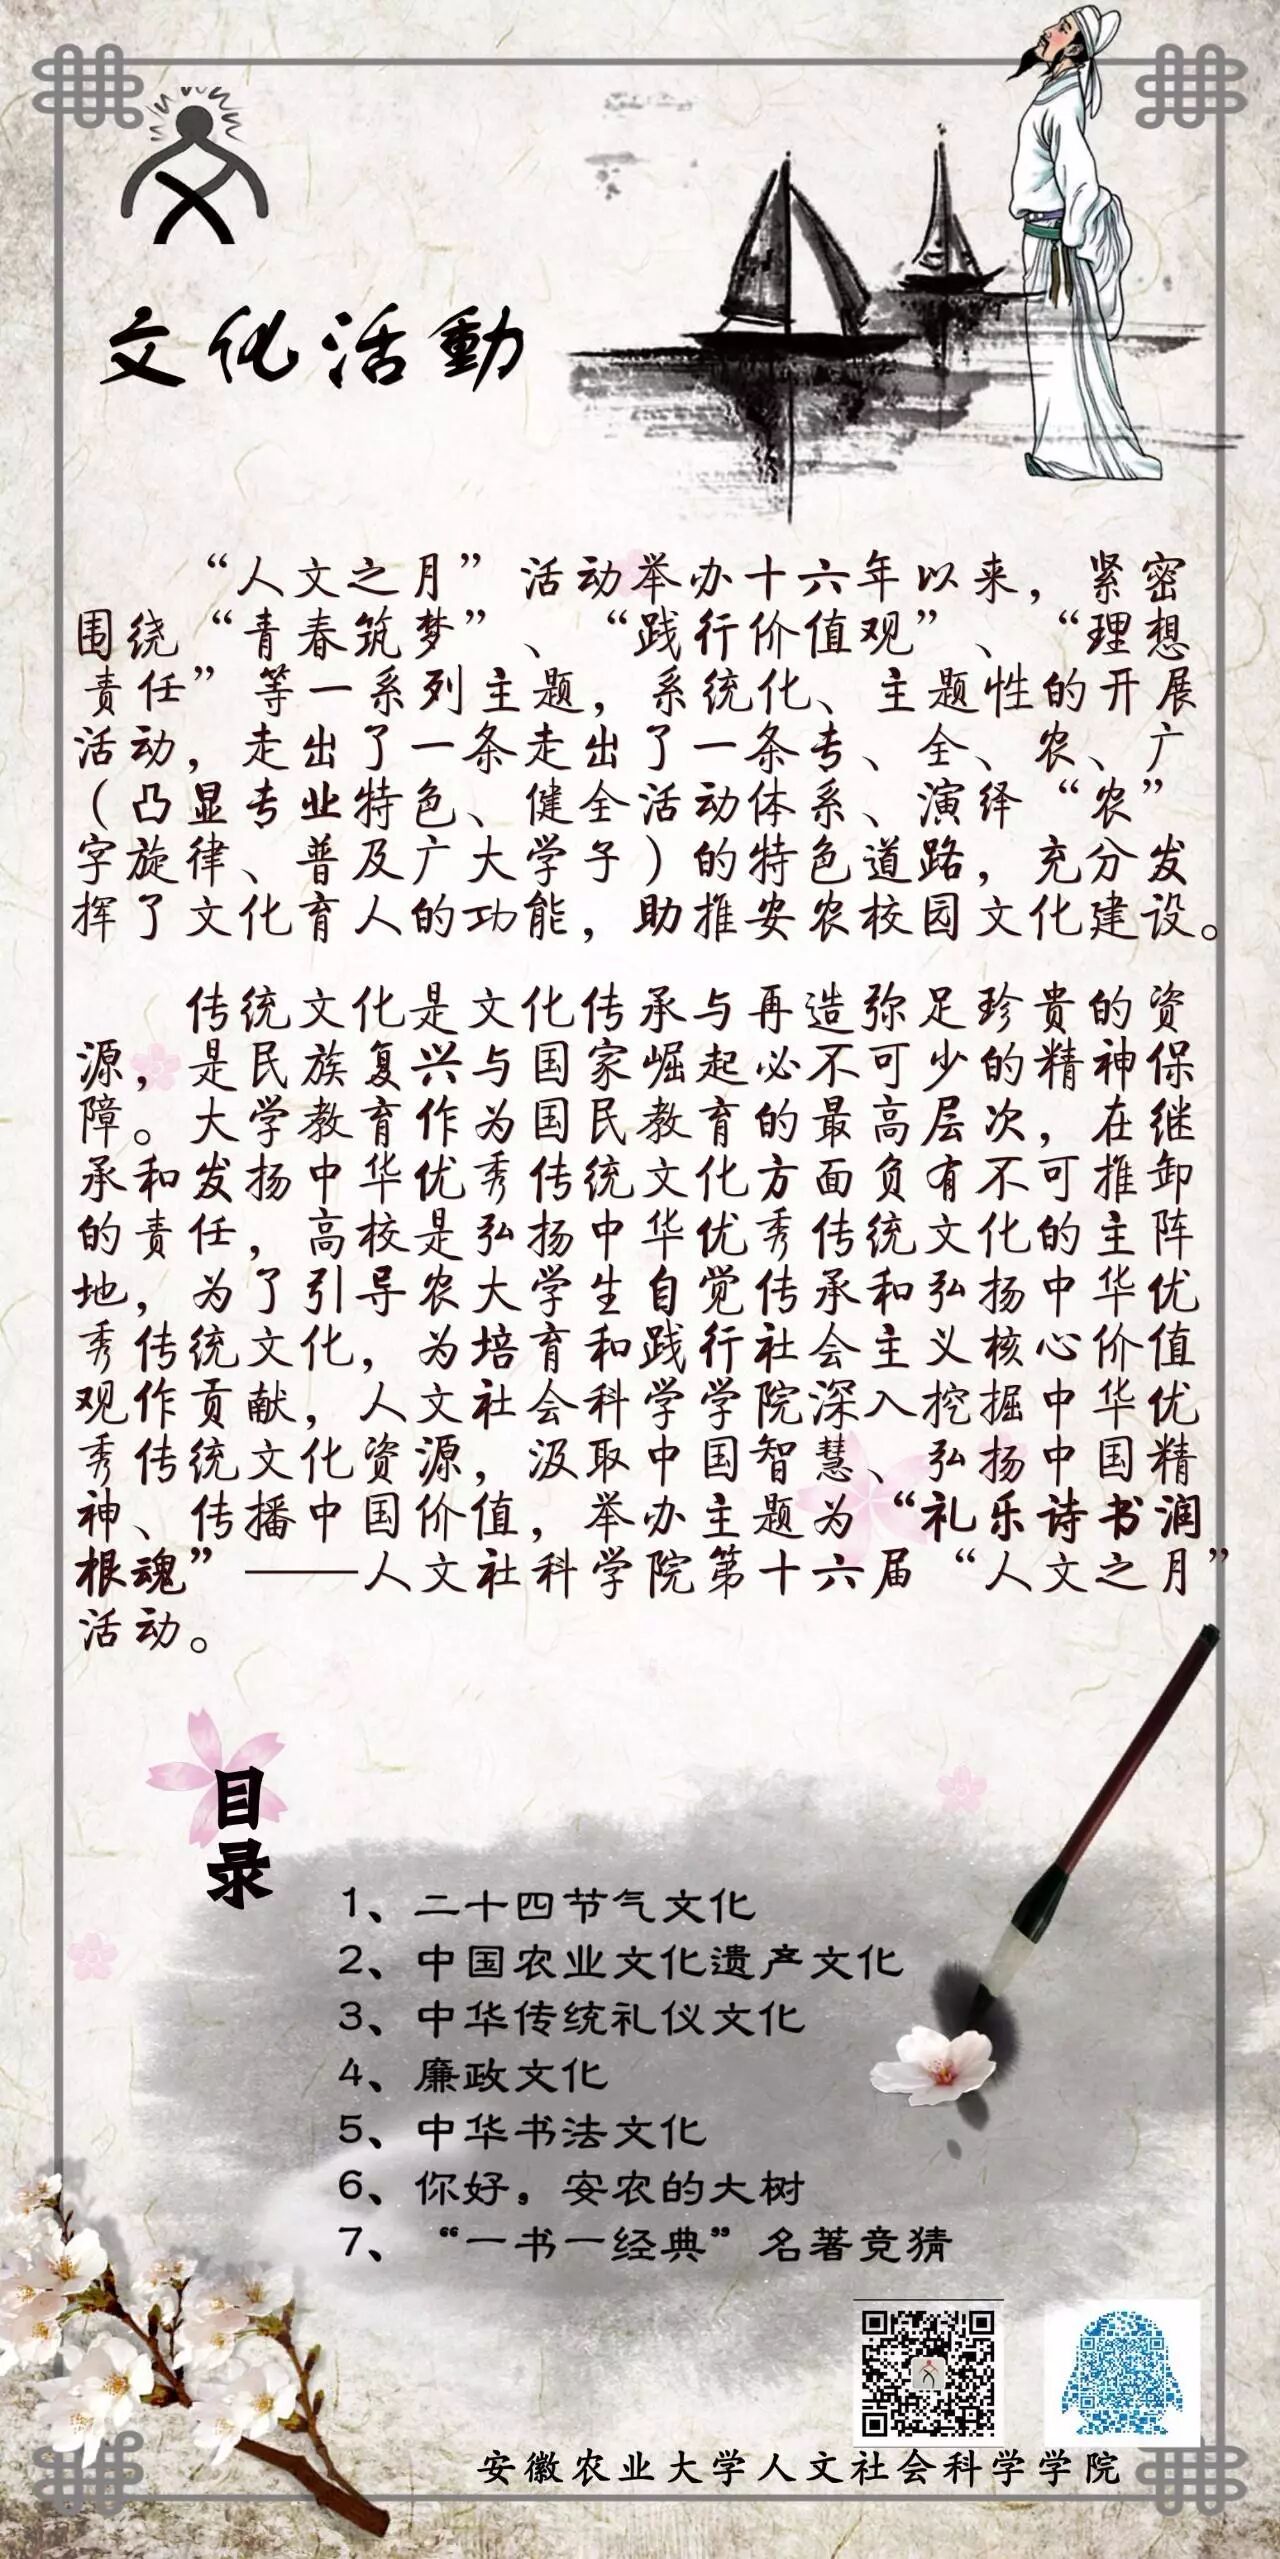 文化活動
“人文之月”活动举办十六年以来，紧密
围绕“青春筑梦”、“践行价值观”、“理想
责任”等一系列主题，系统化、主题性的开展
活动，走出了一条走出了一条专、全、农、广
（凸显专业特色、健全活动体系、演绎“农”
字旋律、普及广大学子）的特色道路，充分发
挥了文化育人的功能，助推安农校园文化建设。
传统文化是文化传承与再造弥足珍贵的资
源，是民族复兴与国家崛起必不可少的精神保
障。大学教育作为国民教育的最高层次，在继
承和发扬中华优秀传统文化方面负有不可推卸
的责任，高校是弘扬中华优秀传统文化的主阵
地，为了引导农大学生自觉传承和弘扬中华优
秀传统文化，为培育和践行社会主义核心价值
观作贡献，人文社会科学学院深入挖掘中华优
秀传统文化资源，汲取中国智慧、弘扬中国精
神、传播中国价值，举办主题为“礼乐诗书润
根魂”——人文社科学院第十六届“人文之月”
活动。
目录
1、二十四节气文化
2、中国农业文化遗产文化
3、中华传统礼仪文化
4、廉政文化
5、中华书法文化
6、你好，安农的大树
7、“一书一经典”名著竞猜
安徽农业大学人文社会科学学院